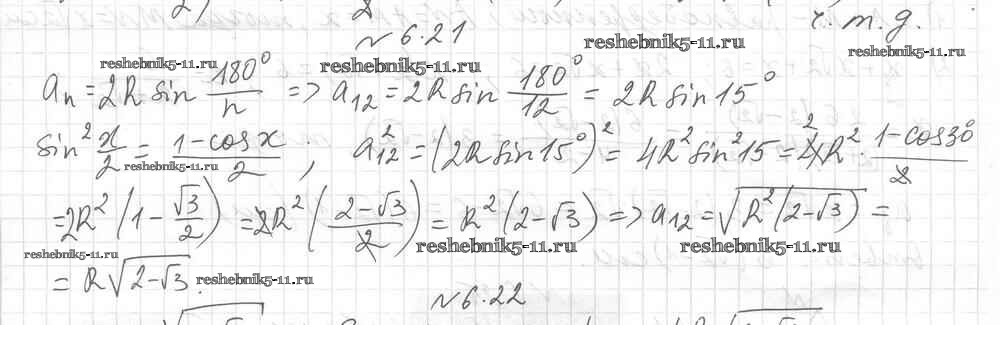 2)
ч. т. д.
№ 6.21
reshebnik5-11.ru
reshebnik5-11.ru
reshebnik5-11.ru
reshebnik5-11.ru
aₙ = 2R sin 180°/n => a₁₂ = 2R sin 180°/12 = 2R sin 15°
sin² x/2 = (1 - cos x)/2 , a₁₂² = (2R sin 15°)² = 4R² sin² 15 = 4R² · (1 - cos 30°)/2
reshebnik5-11.ru
= 2R² (1 - √3/2) = 2R² ((2 - √3)/2) = R² (2 - √3) => a₁₂ = √(R² (2 - √3)) =
reshebnik5-11.ru
reshebnik5-11.ru
reshebnik5-11.ru
= R √(2 - √3).
reshebnik5-11.ru
№ 6.22